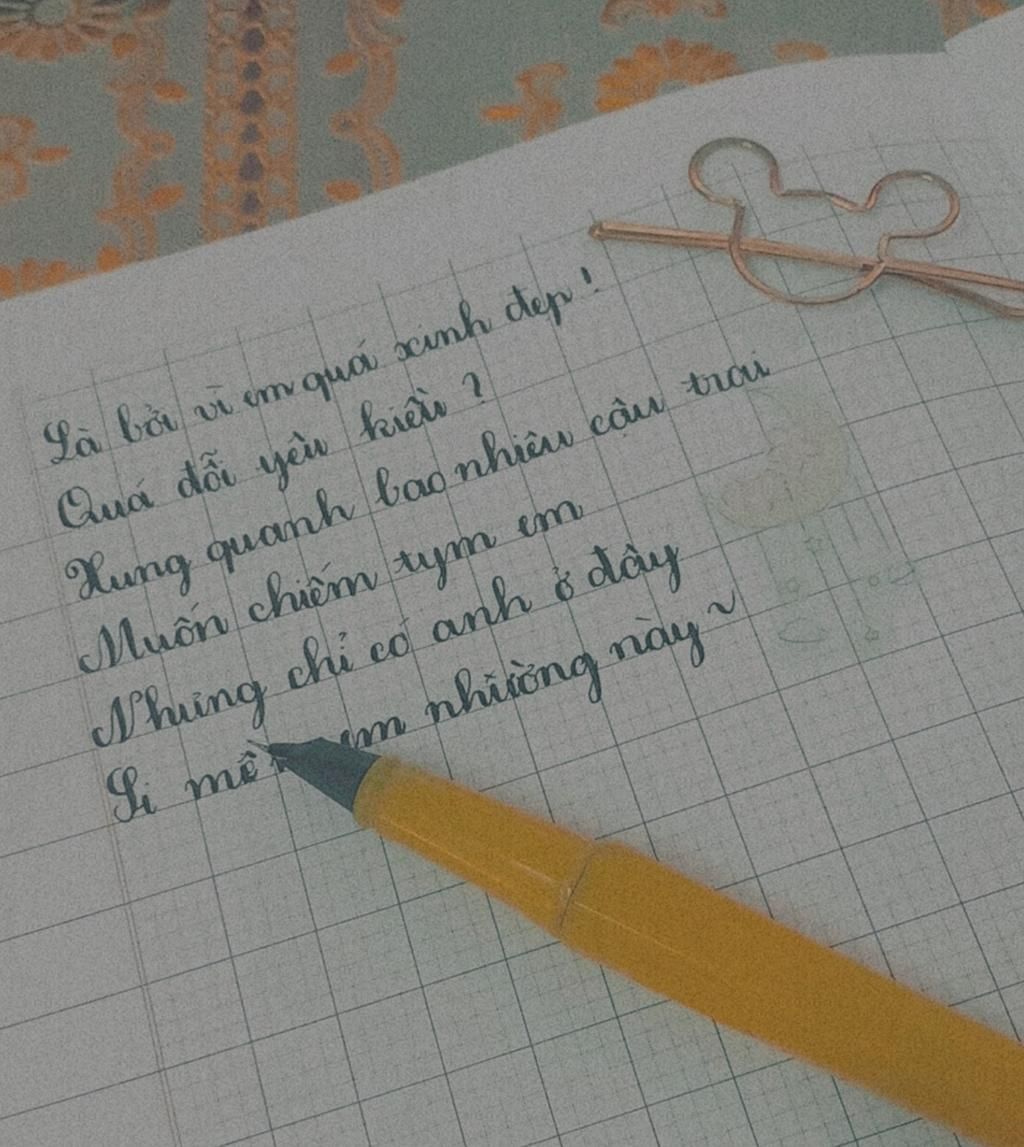 Là bởi vì em quá xinh đẹp!
Quá đỗi yêu kiều?
Xung quanh bao nhiêu cậu trai
Muốn chiếm tym em
Nhưng chỉ có anh ở đây
Si mê em nhường này ~